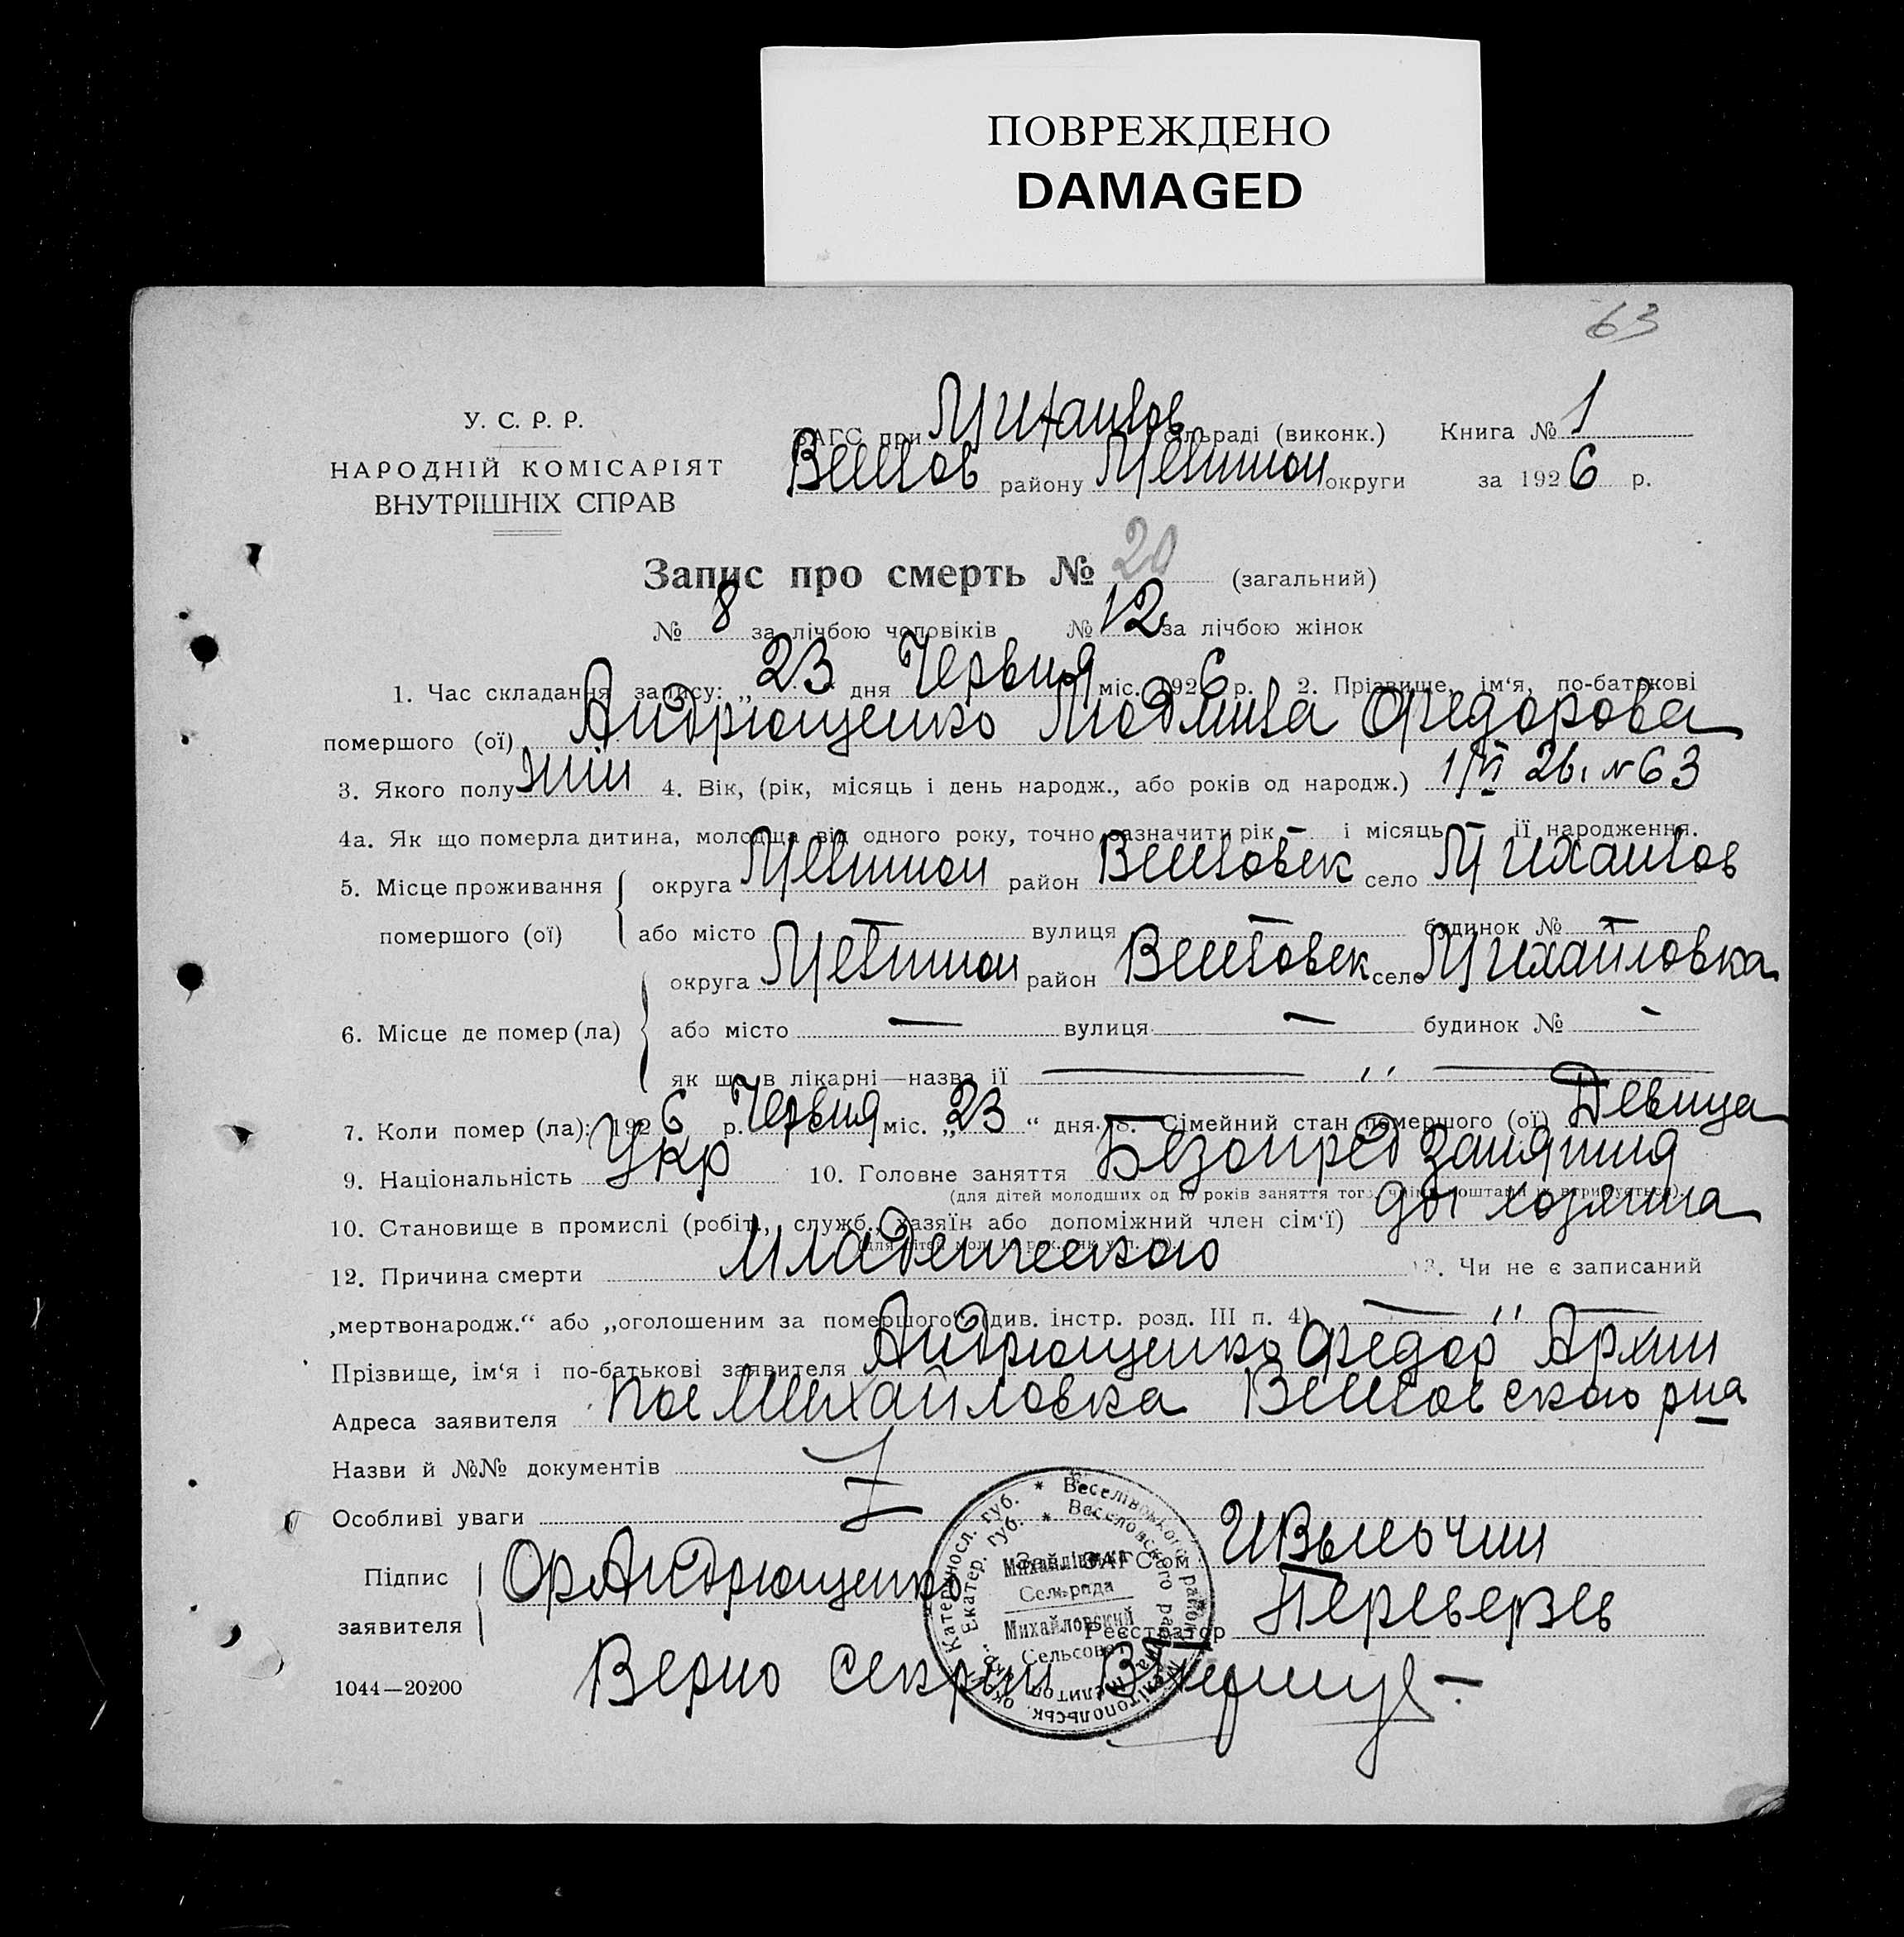 ПОВРЕЖДЕНО
DAMAGED
63
У. С. Р. Р.
НАРОДНІЙ КОМІСАРІЯТ
ВНУТРІШНІХ СПРАВ
ЗАГС при Михайлов сільраді (виконк.) Книга № 1
району округи за 1926 р.
Запис про смерть № 20 (загальний)
№ 8 за лічбою чоловіків № 12 за лічбою жінок
1. Час складання запису: „ 23 дня Червня міс. 1926 р. 2. Прізвище, ім‘я, по-батькові
помершого (ої) Андрющенко Людмила Федорова
3. Якого полу жін 4. Вік, (рік, місяць і день народж., або років од народж.) 1/VI 26. № 63
4а. Як що померла дитина, молодща від одного року, точно зазначити рік — і місяць — її народження.
5. Місце проживання округа район село Михайлов
помершого (ої) або місто — вулиця — будинок № —
округа район село Михайловка
6. Місце де помер (ла) або місто — вулиця — будинок № -
як що в лікарні—назва її — „ —
7. Коли помер (ла): 1926 р. Червня міс. „ 23 “ дня. 8. Сімейний стан помершого (ої) Девица
9. Національність Укр 10. Головне заняття Безопред занятия
(для дітей молодших од 10 років заняття того, чиїми коштами їх втримується).
10. Становище в промислі (робіт., служб., хазяїн або допоміжний член сім‘ї) хозяина
12. Причина смерти Младенческою 13. Чи не є записаний
„мертвонародж.“ або „оголошеним за помершого“ (див. інстр. розд. III п. 4) — „ —
Прізвище, ім‘я і по-батькові заявителя Андрющенко Федор
Адреса заявителя пос Михайловка рна
Назви й №№ документів
Особливі уваги
Підпис Ф Андрющенко Зав. ЗАГСом
заявителя Реєстратор Переверзев
Катериносл. губ. * Веселівського району Мелітопольськ. окр.
Екатер. губ. * Веселовского района Мелитоп. окр.
Михайлівська
Сельрада
Михайловский
Сельсовет
1044—20200 Верно